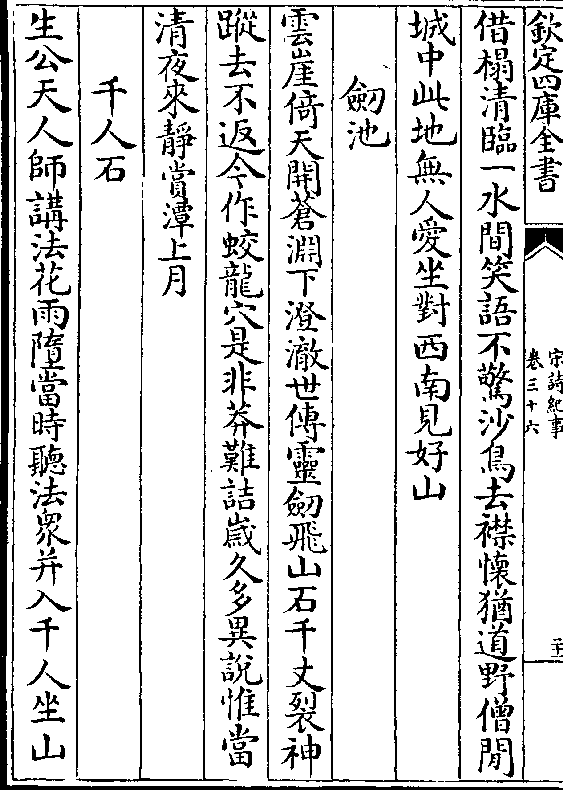 欽定四庫全書
宋詩紀事
卷三十六
二十
借榻清臨一水間笑語不驚沙鳥去襟懷猶道野僧閒
城中此地無人愛坐對西南見好山
劒池
雲崖倚天開蒼淵下澄澈世傳靈劒飛山石千丈裂神
蹤去不返今作蛟龍穴是非莽難詰歲久多異說惟當
清夜來靜賞潭上月
千人石
生公天人師講法花雨墮當時聽法衆并入千人坐山